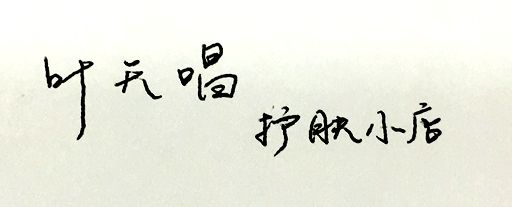 叶天唱
护肤小店